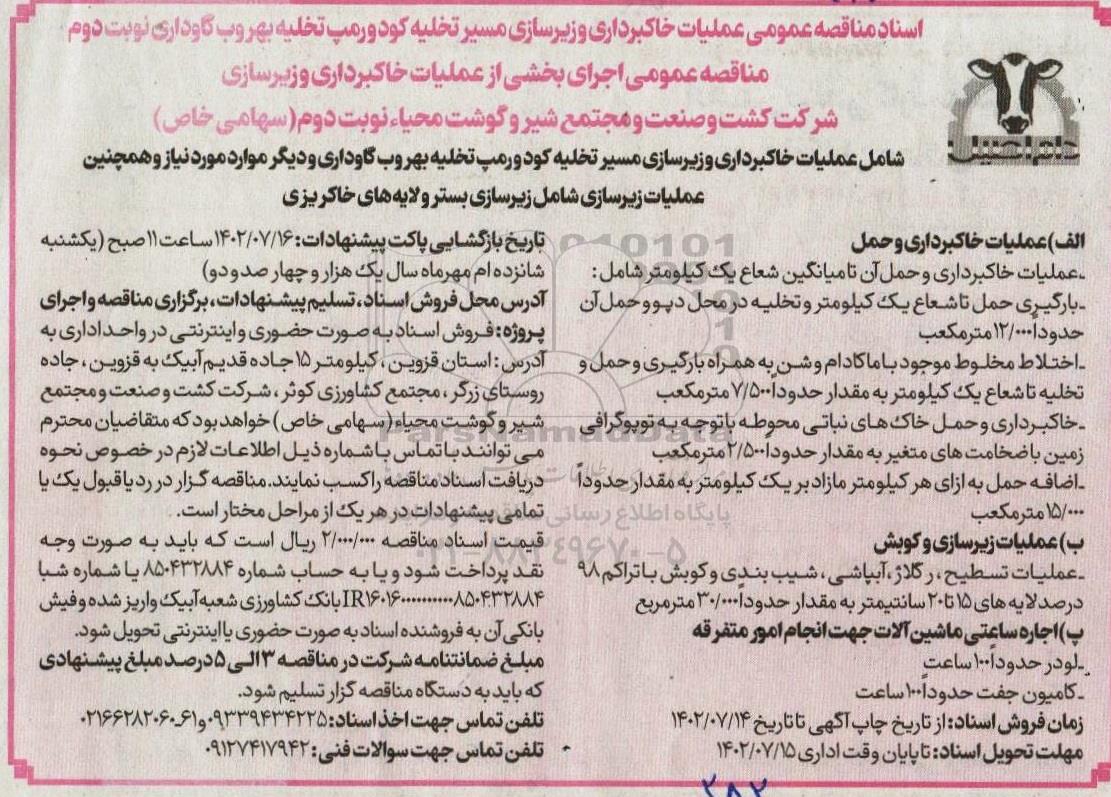 اسناد مناقصه عمومی عملیات خاکبرداری و زیرسازی مسیر تخلیه کود و رمپ تخلیه بهر وب گاوداری نوبت دوم
مناقصه عمومی اجرای بخشی از عملیات خاکبرداری و زیرسازی
شرکت کشت و صنعت و مجتمع شیر و گوشت محیاء نوبت دوم (سهامی خاص)
دام اصیل
شامل عملیات خاکبرداری و زیرسازی مسیر تخلیه کود و رمپ تخلیه بهر وب گاوداری و دیگر موارد مورد نیاز و همچنین
عملیات زیرسازی شامل زیرسازی بستر و لایه های خاکریزی
الف) عملیات خاکبرداری و حمل
ـ عملیات خاکبرداری و حمل آن تا میانگین شعاع یک کیلومتر شامل:
ـ بارگیری حمل تا شعاع یک کیلومتر و تخلیه در محل دپو و حمل آن
حدوداً ۱۲/۰۰۰ مترمکعب
ـ اختلاط مخلوط موجود با ماکادام و شن به همراه بارگیری و حمل و
تخلیه تا شعاع یک کیلومتر به مقدار حدوداً ۷/۵۰۰ مترمکعب
ـ خاکبرداری و حمل خاک های نباتی محوطه با توجه به توپوگرافی
زمین با ضخامت های متغیر به مقدار حدوداً ۲/۵۰۰ مترمکعب
ـ اضافه حمل به ازای هر کیلومتر مازاد بر یک کیلومتر به مقدار حدوداً
۱۵/۰۰۰ مترمکعب
ب) عملیات زیرسازی و کوبش
ـ عملیات تسطیح، رگلاژ، آبپاشی، شیب بندی و کوبش با تراکم ۹۸
درصد لایه های ۱۵ تا ۲۰ سانتیمتر به مقدار حدوداً ۳۰/۰۰۰ مترمربع
پ) اجاره ساعتی ماشین آلات جهت انجام امور متفرقه
ـ لودر حدوداً ۱۰۰ ساعت
ـ کامیون جفت حدوداً ۱۰۰ ساعت
زمان فروش اسناد: از تاریخ چاپ آگهی تا تاریخ ۱۴۰۲/۰۷/۱۴
مهلت تحویل اسناد: تا پایان وقت اداری ۱۴۰۲/۰۷/۱۵
تاریخ بازگشایی پاکت پیشنهادات: ۱۴۰۲/۰۷/۱۶ ساعت ۱۱ صبح (یکشنبه
شانزده ام مهر ماه سال یک هزار و چهار صد و دو)
آدرس محل فروش اسناد، تسلیم پیشنهادات، برگزاری مناقصه و اجرای
پروژه: فروش اسناد به صورت حضوری و اینترنتی در واحد اداری به
آدرس: استان قزوین، کیلومتر ۱۵ جاده قدیم آبیک به قزوین، جاده
روستای زرگر، مجتمع کشاورزی کوثر، شرکت کشت و صنعت و مجتمع
شیر و گوشت محیاء (سهامی خاص) خواهد بود که متقاضیان محترم
می توانند با تماس با شماره ذیل اطلاعات لازم در خصوص نحوه
دریافت اسناد مناقصه را کسب نمایند. مناقصه گزار در رد یا قبول یک یا
تمامی پیشنهادات در هر یک از مراحل مختار است.
قیمت اسناد مناقصه ۲/۰۰۰/۰۰۰ ریال است که باید به صورت وجه
نقد پرداخت شود و یا به حساب شماره ۸۵۰۴۳۲۸۸۴ یا شماره شبا
بانک کشاورزی شعبه آبیک واریز شده و فیش
بانکی آن به فروشنده اسناد به صورت حضوری یا اینترنتی تحویل شود.
مبلغ ضمانتنامه شرکت در مناقصه ۳ الی ۵ درصد مبلغ پیشنهادی
که باید به دستگاه مناقصه گزار تسلیم شود.
تلفن تماس جهت اخذ اسناد: ۰۹۳۳۹۴۳۴۲۲۵ و ۶۱-۰۲۱۶۶۲۸۲۰۶۰
تلفن تماس جهت سوالات فنی: ۰۹۱۲۷۴۱۷۹۴۲
ParsNamadData
پایگاه اطلاع رسانی
۰۲۱-۸۸۳۴۹۶۷۰-۵
۲۸۲